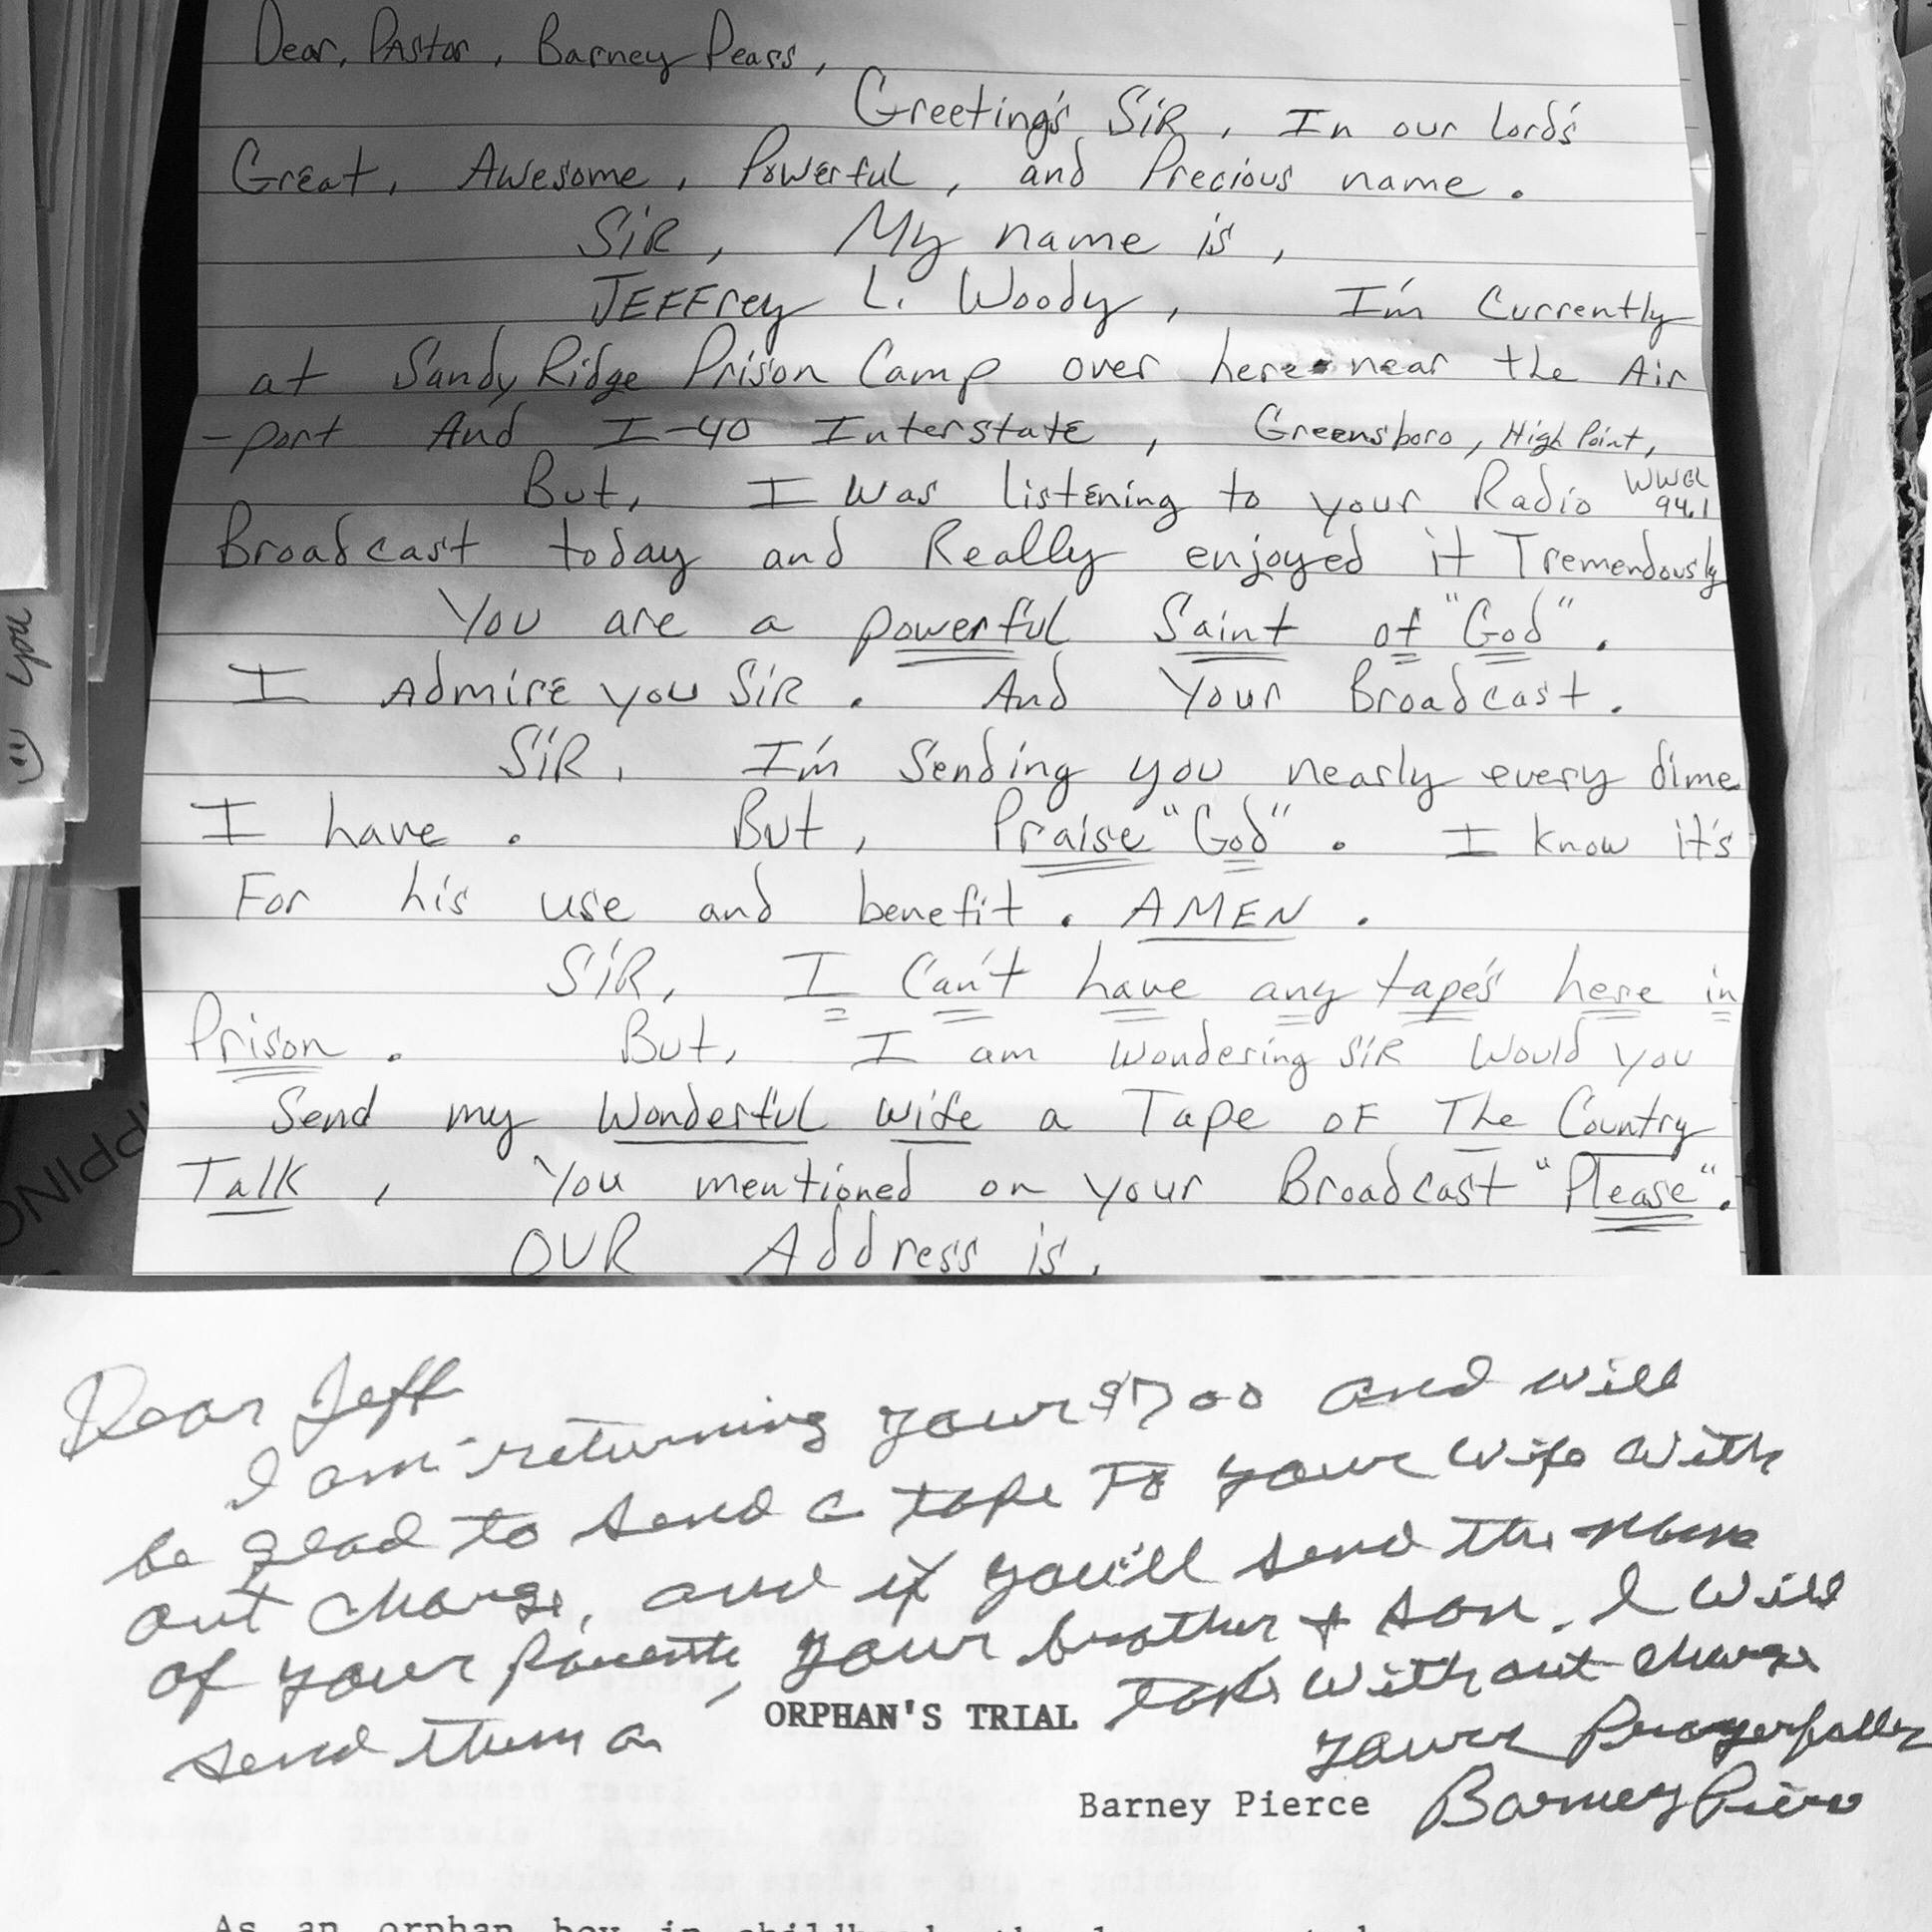 Dear, Pastor, Barney Pearss,
Greeting's SiR, In our Lord's
Great, Awesome, Powerful, and Precious name.
SiR, My name is,
JEFFrey L. Woody, I'm Currently
at Sandy Ridge Prison Camp over here near the Air
-port And I-40 Interstate, Greensboro, High Point,
But, I was listening to your Radio WWGL 94.1
Broadcast today and Really enjoyed it Tremendously
You are a powerful Saint of "God".
I Admire you SiR. And Your Broadcast.
SiR, I'm Sending you nearly every dime
I have. But, Praise "God". I know it's
For his use and benefit. AMEN.
SiR, I Can't have any tape's here in
Prison. But, I am wondering SiR Would you
Send my Wonderful wife a Tape of The Country
Talk, You mentioned on your Broadcast "Please".
OUR Address is,
you
Dear Jeff
I am returning your $7.00 and will
be glad to send a tape to your wife with
out charge, and if you'll send the name
of your parents, your brother & son. I will
send them a tape without charge
ORPHAN'S TRIAL
yours Prayerfully
Barney Pierce Barney Pierce
As an orphan boy in